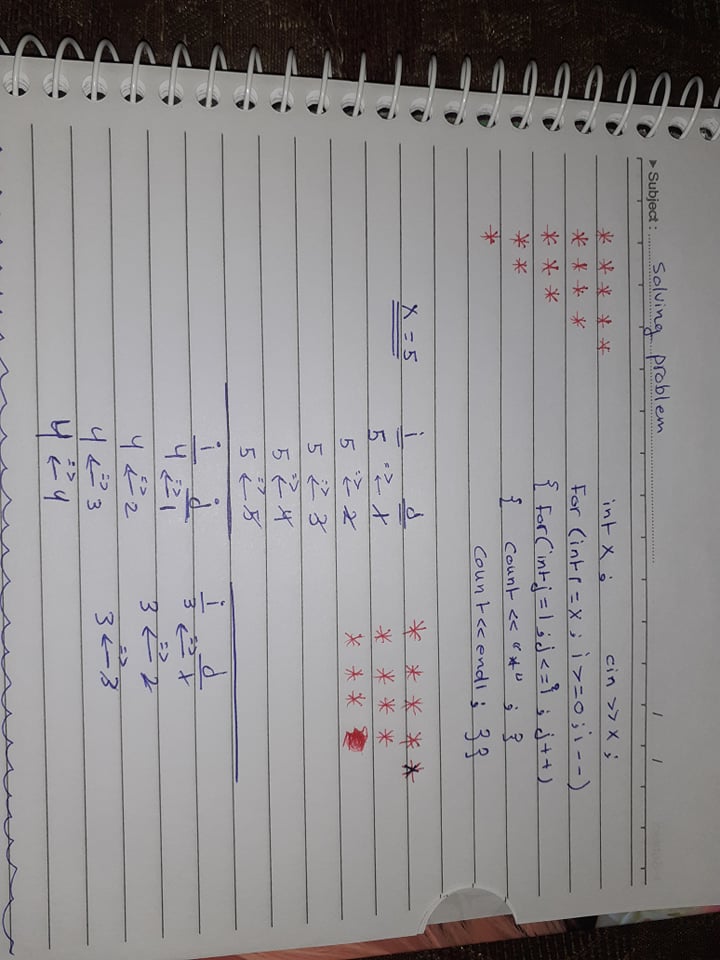 Subject: Solving problem / /
* * * * *   int x; cin >> x;
* * * *   for (int i = x; i >= 0; i--)
* * *   { for(int j=1; j <= i; j++)
* *   { count << "*"; }
*   count << endl; }}
x = 5   i   d   * * * * *
5 => ← 1   * * * *
5 => ← 2   * * *
5 => ← 3
5 => ← 4
5 => ← 5
i   d   i   d
4 => ← 1   3 => ← 1
4 => ← 2   3 => ← 2
4 => ← 3   3 => ← 3
4 => ← 4